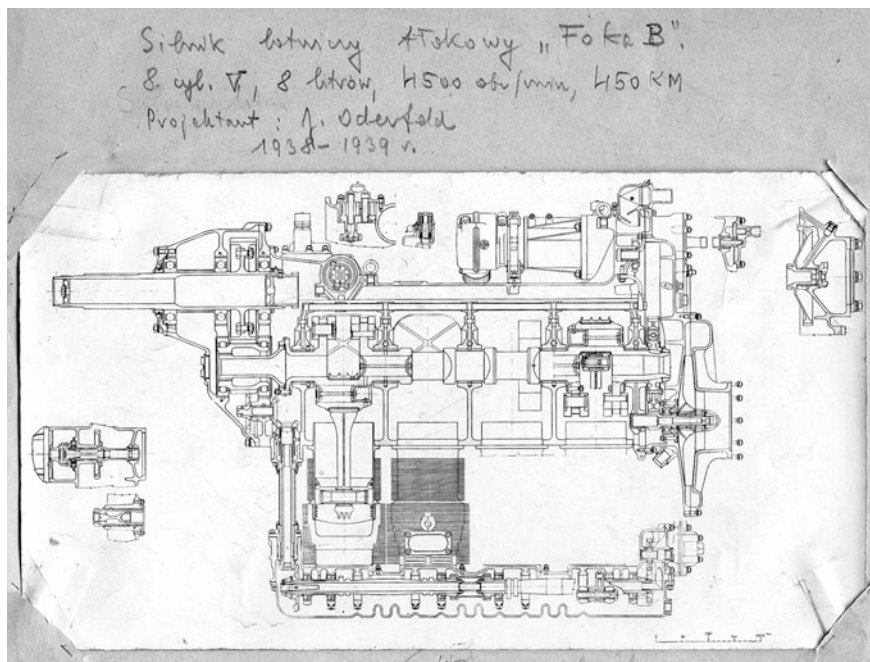 Silnik lotniczy tłokowy „Foka B".
8 cyl. V, 8 litrów, 4500 obr/min, 450 KM
Projektant: J. Oderfeld
1938–1939 r.